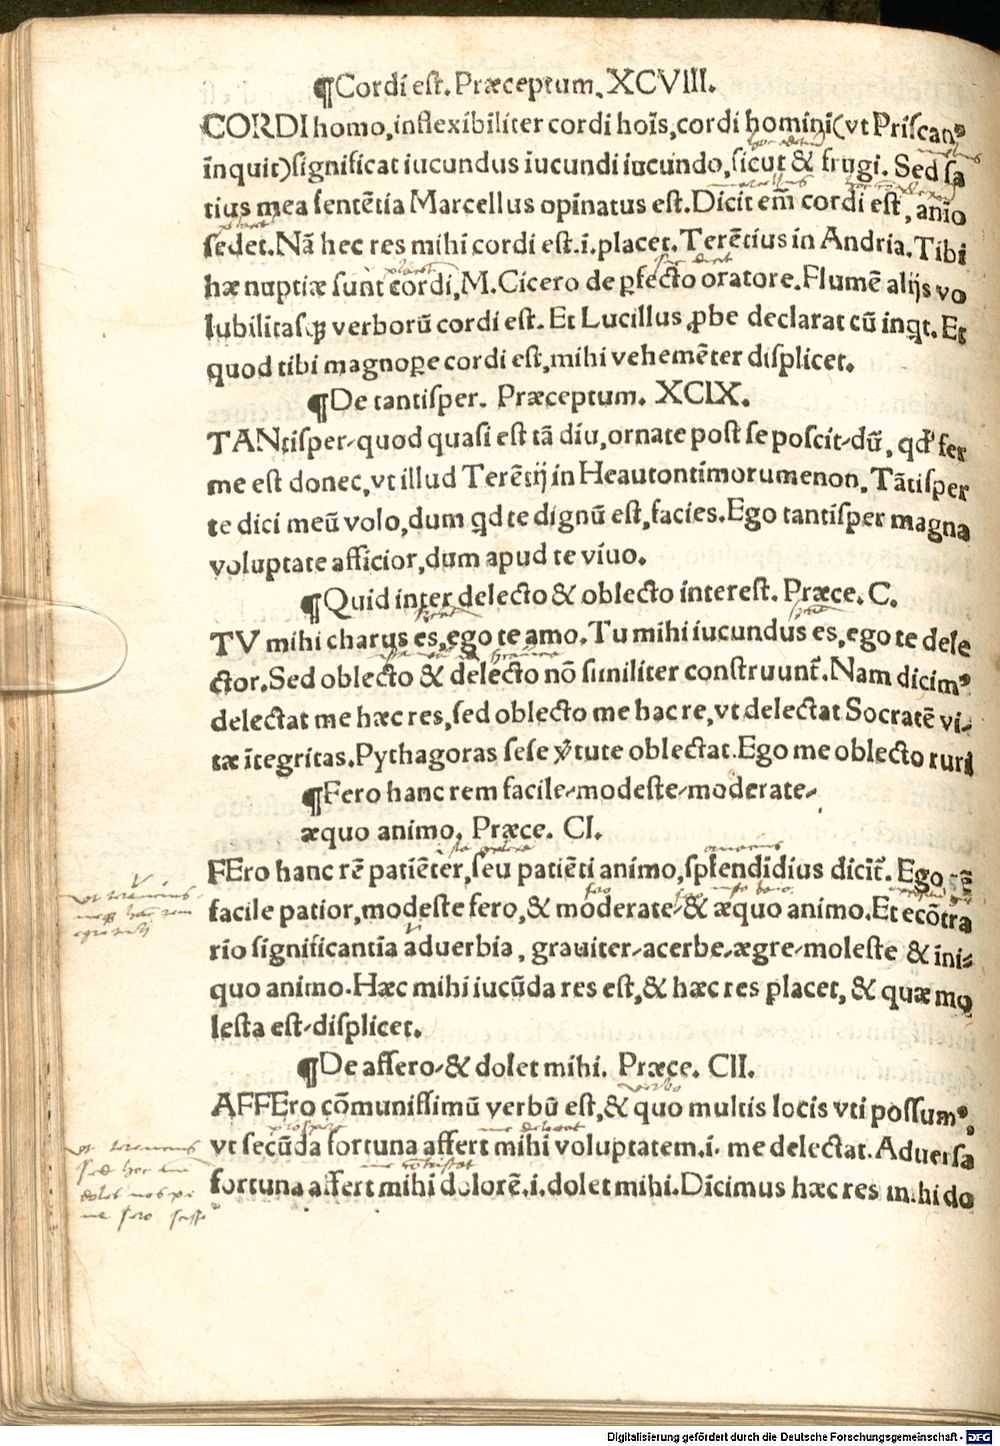 ¶Cordi est. Præceptum. XCVIII.
CORDI homo, inflexibiliter cordi hoīs, cordi homini (vt Priſcanꝰ
īnquit) ſignificat iucundus iucundi iucundo, ſicut & frugi. Sed ſa
tius mea ſentētia Marcellus opinatus eſt. Dicit em̄ cordi eſt, anīo
ſedet. Nā hec res mihi cordi eſt .i. placet. Terētius in Andria. Tibi
hæ nuptiæ ſunt cordi, M. Cicero de ꝑfecto oratore. Flumē alijs vo
lubilitaſqꝫ verborū cordi eſt. Et Lucillus ꝓbe declarat cū inqt. Et
quod tibi magnoꝑe cordi eſt, mihi vehemēter diſplicet.
¶De tantiſper. Præceptum. XCIX.
TANtiſper-quod quaſi eſt tā diu, ornate poſt ſe poſcit-dū, qd' fer
me eſt donec, vt illud Terētij in Heautontimorumenon. Tātiſper
te dici meū volo, dum qd te dignū eſt, facies. Ego tantiſper magna
voluptate afficior, dum apud te viuo.
¶Quid inter delecto & oblecto intereſt. Præce. C.
TV mihi charus es, ego te amo. Tu mihi iucundus es, ego te dele
ctor. Sed oblecto & delecto nō ſimiliter conſtruunt̄. Nam dicimꝰ
delectat me hæc res, ſed oblecto me hac re, vt delectat Socratē vi-
tæ ītegritas. Pythagoras ſeſe v̄tute oblectat. Ego me oblecto ruri
¶Fero hanc rem facile-modeſte-moderate-
æquo animo. Præce. CI.
FEro hanc rē patiēter, ſeu patiēti animo, ſplendidius dicit̄. Ego rē
facile patior, modeſte fero, & moderate-& æquo animo. Et ecōtra
rio ſignificantia aduerbia, grauiter-acerbe-ægre-moleſte & ini-
quo animo. Hæc mihi iucūda res eſt, & hæc res placet, & quæ mo
leſta eſt-diſplicet.
¶De affero-& dolet mihi. Præce. CII.
AFFEro cōmuniſſimū verbū eſt, & quo multis locis vti poſſumꝰ,
vt ſecūda fortuna affert mihi voluptatem .i. me delectat. Aduerſa
fortuna affert mihi dolorē .i. dolet mihi. Dicimus hæc res mihi do
Digitalisierung gefördert durch die Deutsche Forschungsgemeinschaft - DFG